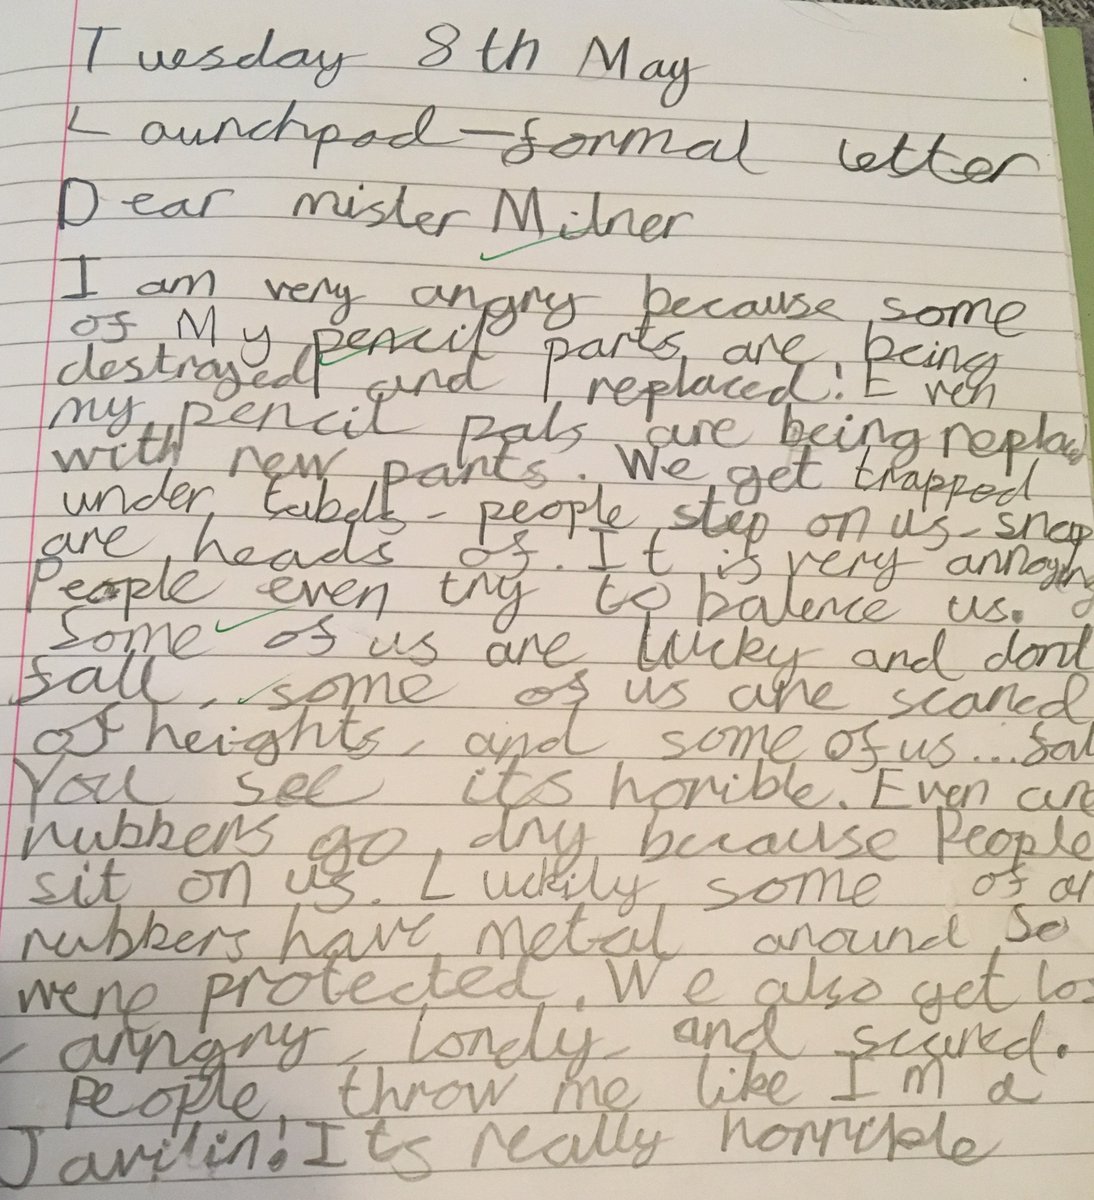 Tuesday 8th May
Launchpad - formal letter
Dear mister Milner
I am very angry because some
of My pencil parts are being
destroyed and replaced! Even
my pencil pals are being replac
with new parts. We get trapped
under tabels - people step on us - snap
are heads of. It is very annoying
People even try to balence us.
Some of us are lucky and dont
fall, some of us are scared
of heights, and some of us...fal
You see its horible. Even are
rubbers go dry because People
sit on us. Luckily some of ar
rubbers have metal around So
were protected. We also get los
, anngry, lonely, and scared.
People throw me like Im a
Javilin! Its really horrible